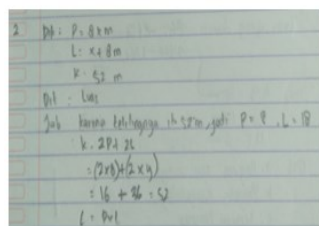 2 Dik : P = 8 x m
L : x + 8 m
K : 52 m
Dit : Luas
Jwb karena kelilingnya 52 m, jadi P = 8 , L = 18
: K = 2P + 2L
= (2x8) + (2 x
= 16 + 36 = 52
L = Pxl